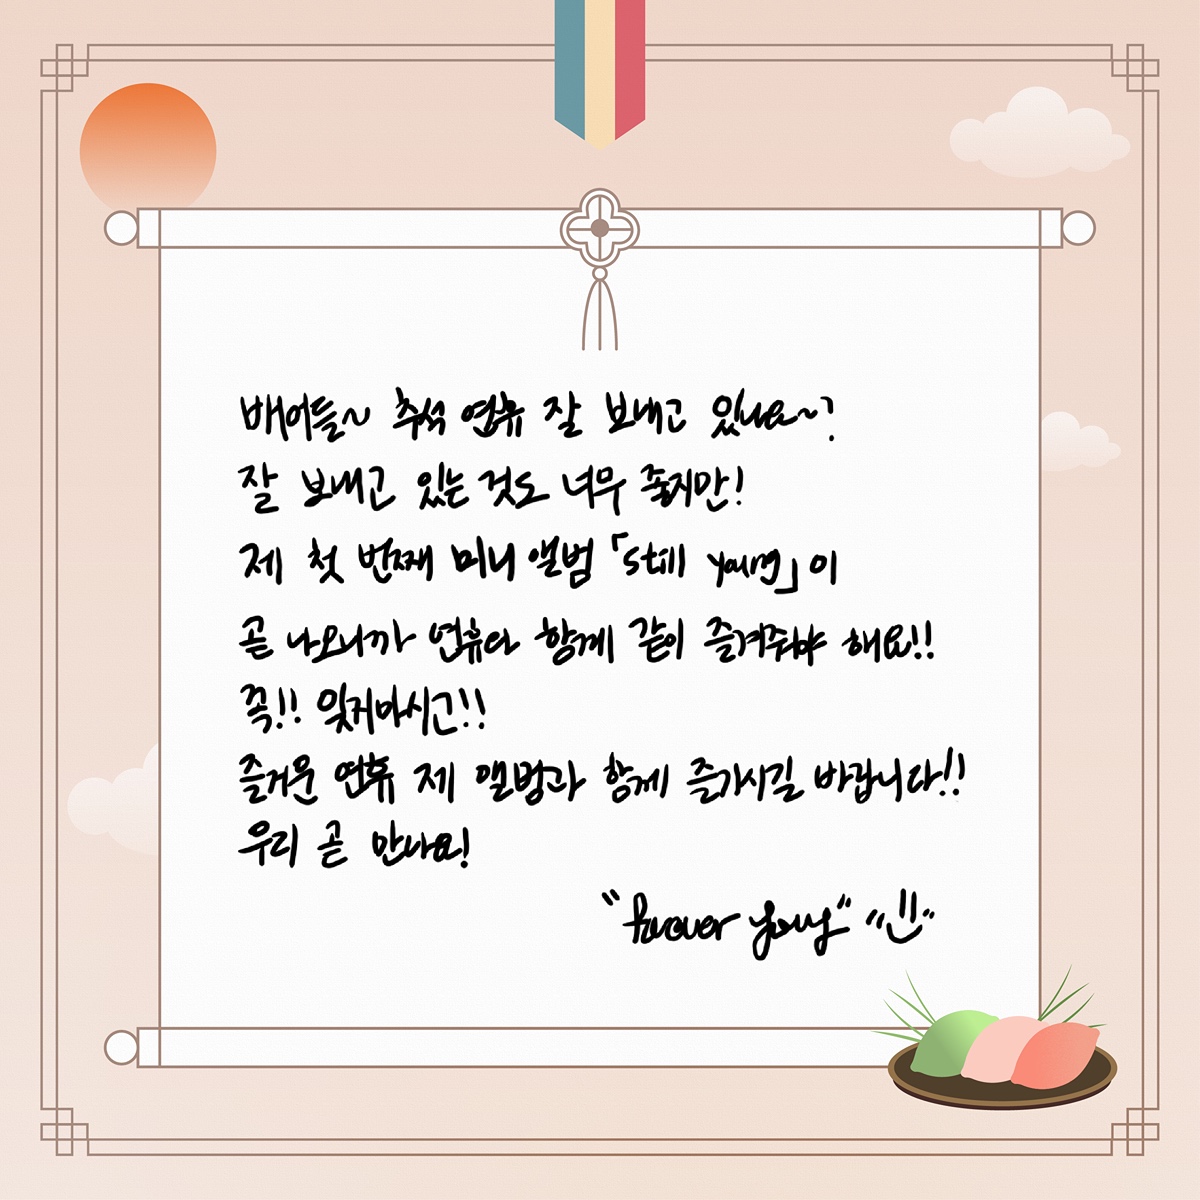 배어들~ 추석 연휴 잘 보내고 있나요~?
잘 보내고 있는 것도 너무 좋지만!
제 첫 번째 미니 앨범 「Still young」이
곧 나오니까 연휴다 함께 같이 즐겨줘야 해요!!
꼭!! 잊지마시고!!
즐거운 연휴 제 앨범과 함께 즐기시길 바랍니다!!
우리 곧 만나요!
"forever young"